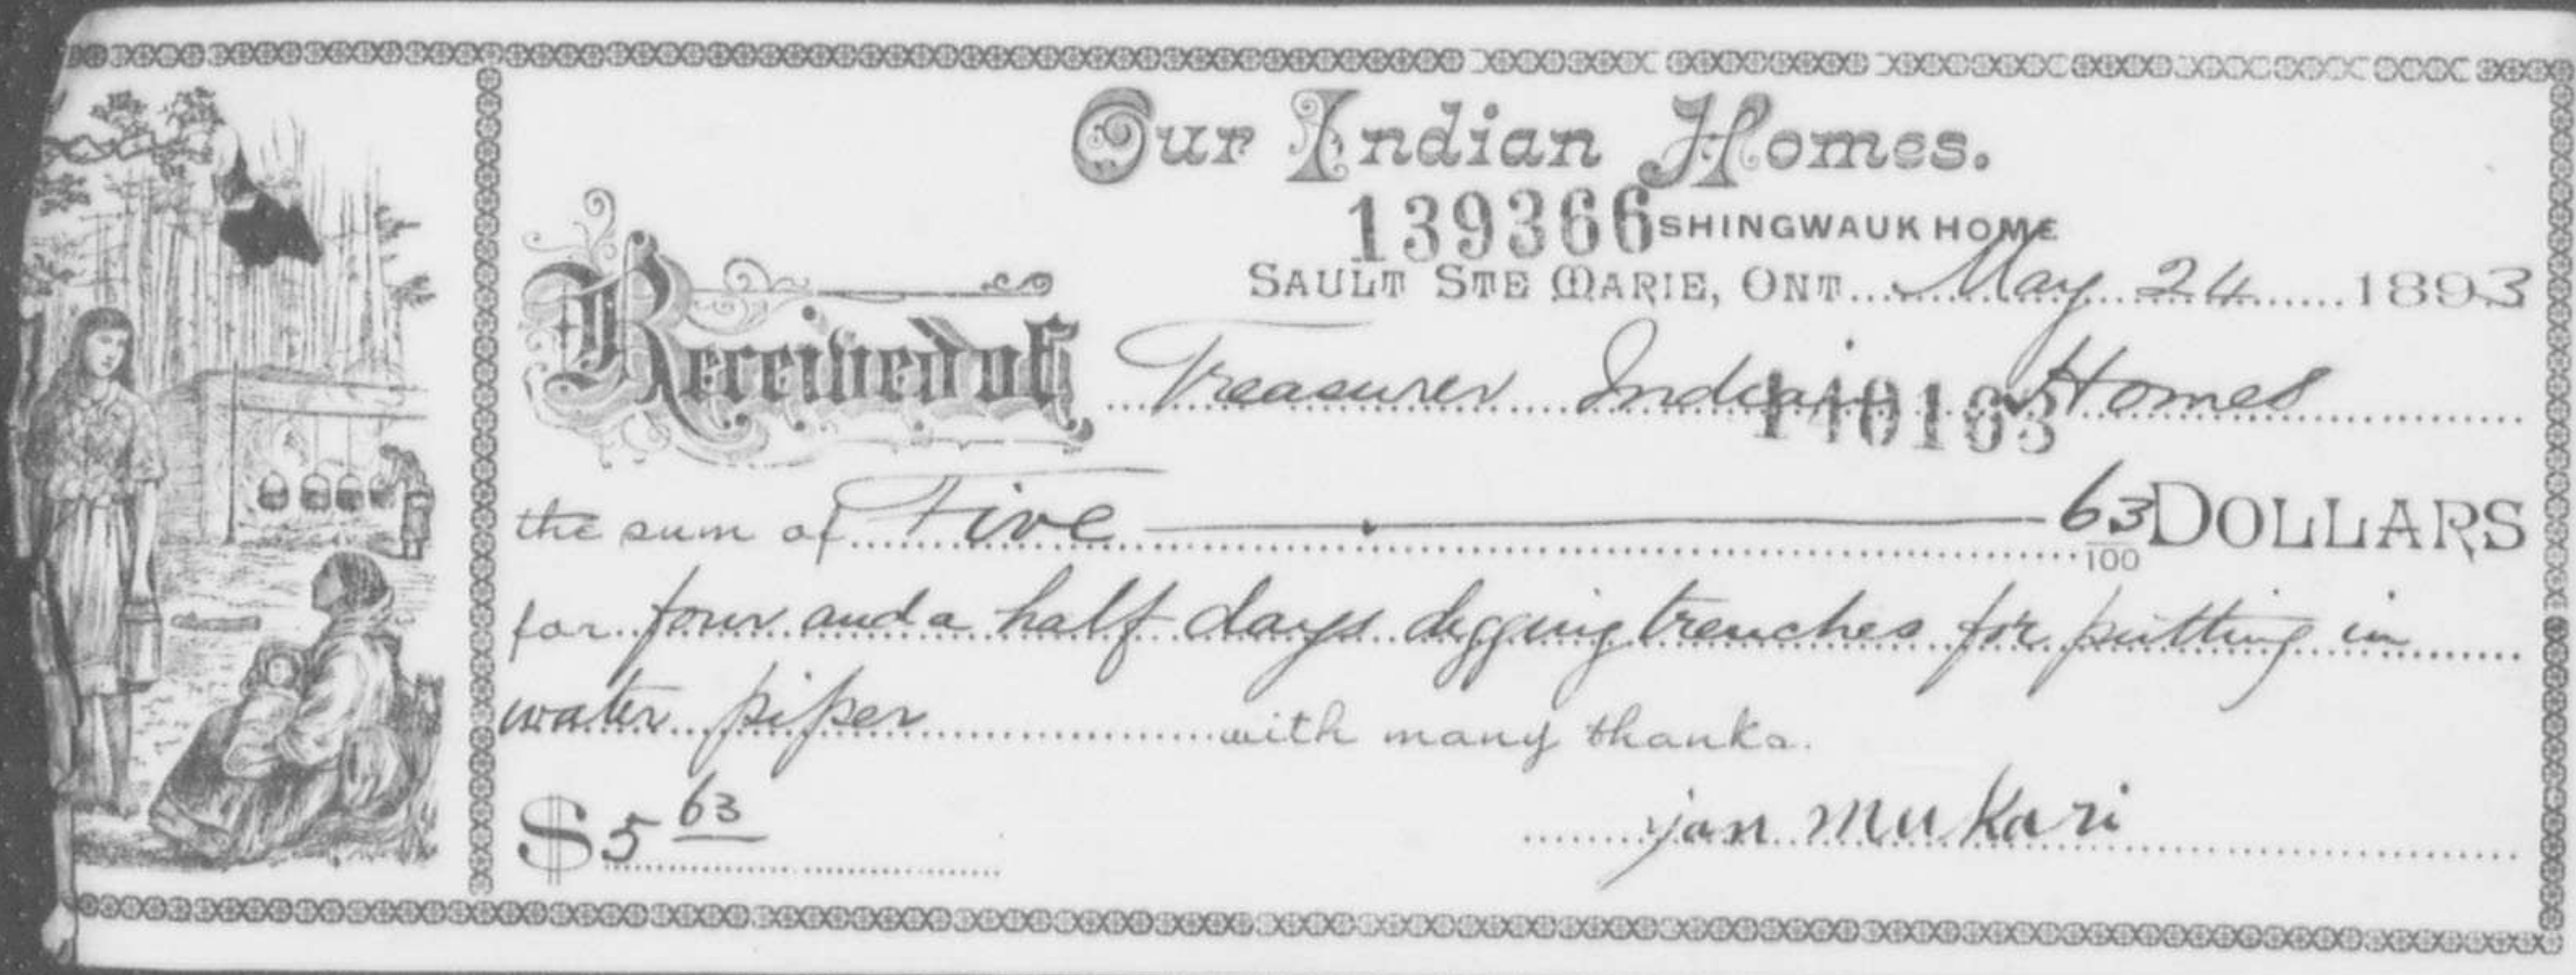 Our Indian Homes.
139366 SHINGWAUK HOME
SAULT STE MARIE, ONT. May 24 1893
Received of Treasurer Indian Homes
140163
the sum of Five 63/100 DOLLARS
for four and a half days digging trenches for putting in
water piper with many thanks.
$5 63
jan Mukari